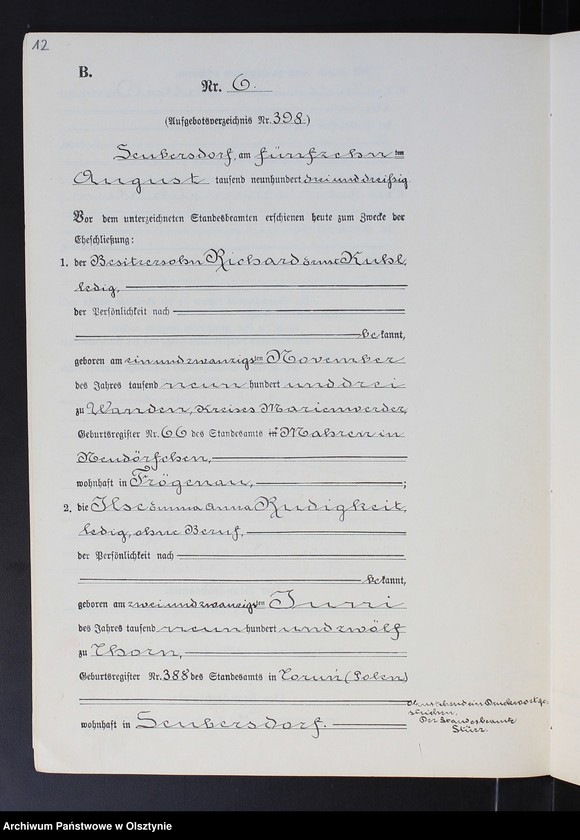 12
B.
Nr. 6.
(Aufgebotsverzeichnis Nr. 398)
Seubersdorf, am fünfzehnten
August tausend neunhundert dreiunddreißig
Vor dem unterzeichneten Standesbeamten erschienen heute zum Zwecke der
Eheschließung:
1. der Besitzersohn Richard Ernst Kuhl,
ledig,
der Persönlichkeit nach
bekannt,
geboren am einundzwanzigsten November
des Jahres tausend neun hundert und drei
zu Wanden, Kreises Marienwerder,
Geburtsregister Nr. 66 des Standesamts in Mahren in
Neudörfchen,
wohnhaft in Frögenau, ;
2. die Ilse Emma Anna Rudigkeit,
ledig, ohne Beruf,
der Persönlichkeit nach
bekannt,
geboren am zweiundzwanzigsten Juni
des Jahres tausend neun hundert und zwölf
zu Thorn,
Geburtsregister Nr. 388 des Standesamts in Toruń (Polen)
wohnhaft in Seubersdorf.
ein Druckwort ge-
strichen.
Der Standesbeamte
Archiwum Państwowe w Olsztynie